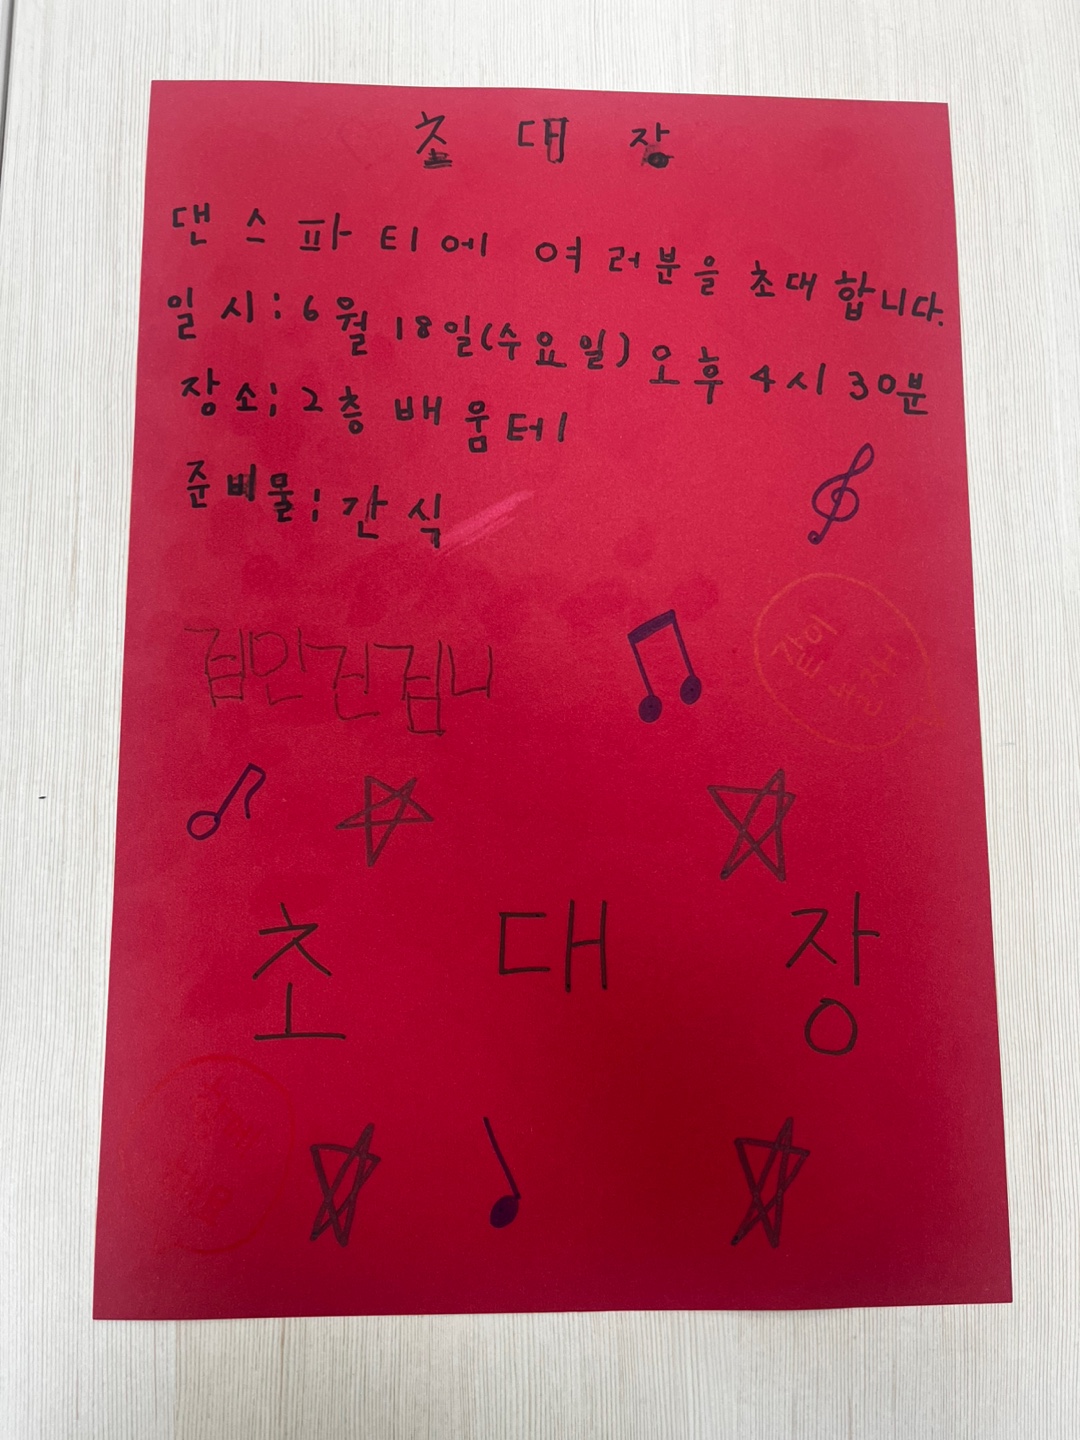 초대장
댄스파티에 여러분을 초대합니다.
일시: 6월 18일(수요일) 오후 4시 30분
장소: 2층 배움터
준비물: 간식
같이
놀자~
초대장